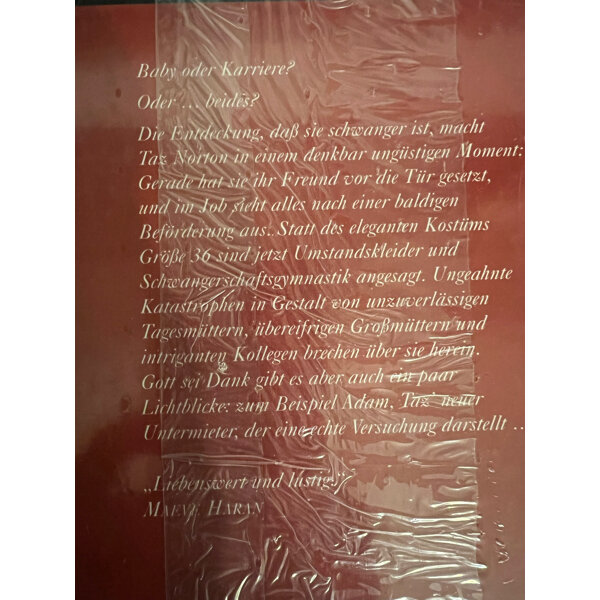 Baby oder Karriere?
Oder … beides?
Die Entdeckung, daß sie schwanger ist, macht
Taz Norton in einem denkbar ungüstigen Moment:
Gerade hat sie ihr Freund vor die Tür gesetzt,
und im Job sieht alles nach einer baldigen
Beförderung aus. Statt des eleganten Kostüms
Größe 36 sind jetzt Umstandskleider und
Schwangerschaftsgymnastik angesagt. Ungeahnte
Katastrophen in Gestalt von unzuverlässigen
Tagesmüttern, übereifrigen Großmüttern und
intriganten Kollegen brechen über sie herein.
Gott sei Dank gibt es aber auch ein paar
Lichtblicke: zum Beispiel Adam, Taz' neuer
Untermieter, der eine echte Versuchung darstellt …
„Liebenswert und lustig!“
MAEVE HARAN